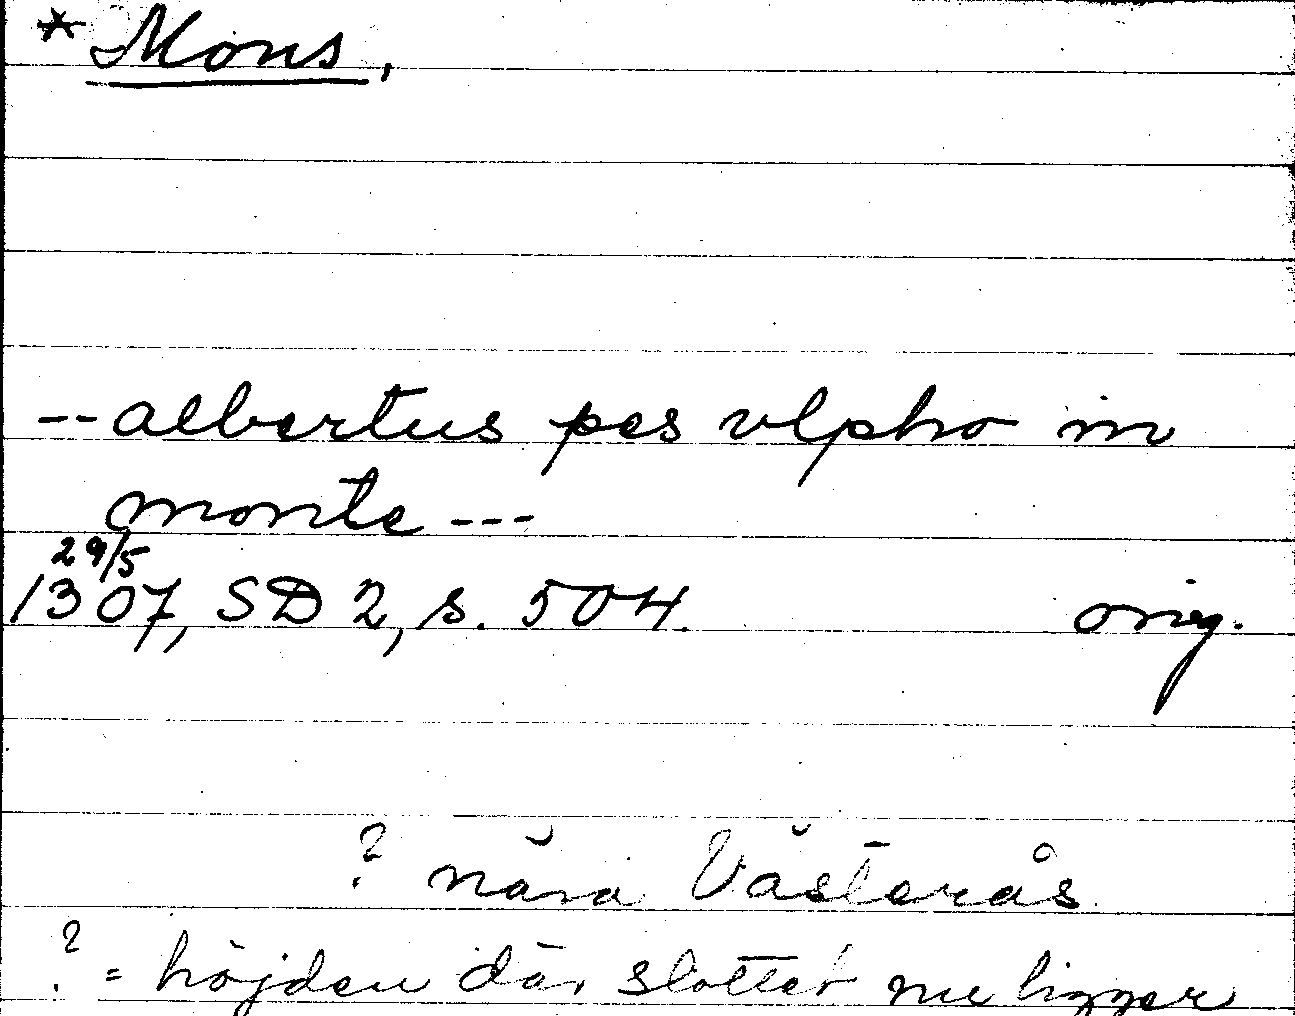 * Mons,
-- albertus pes vlpho in
monte ---
29/5
1307, SD 2, s. 504. orig.
? nära Västerås
? = höjden där slottet nu ligger